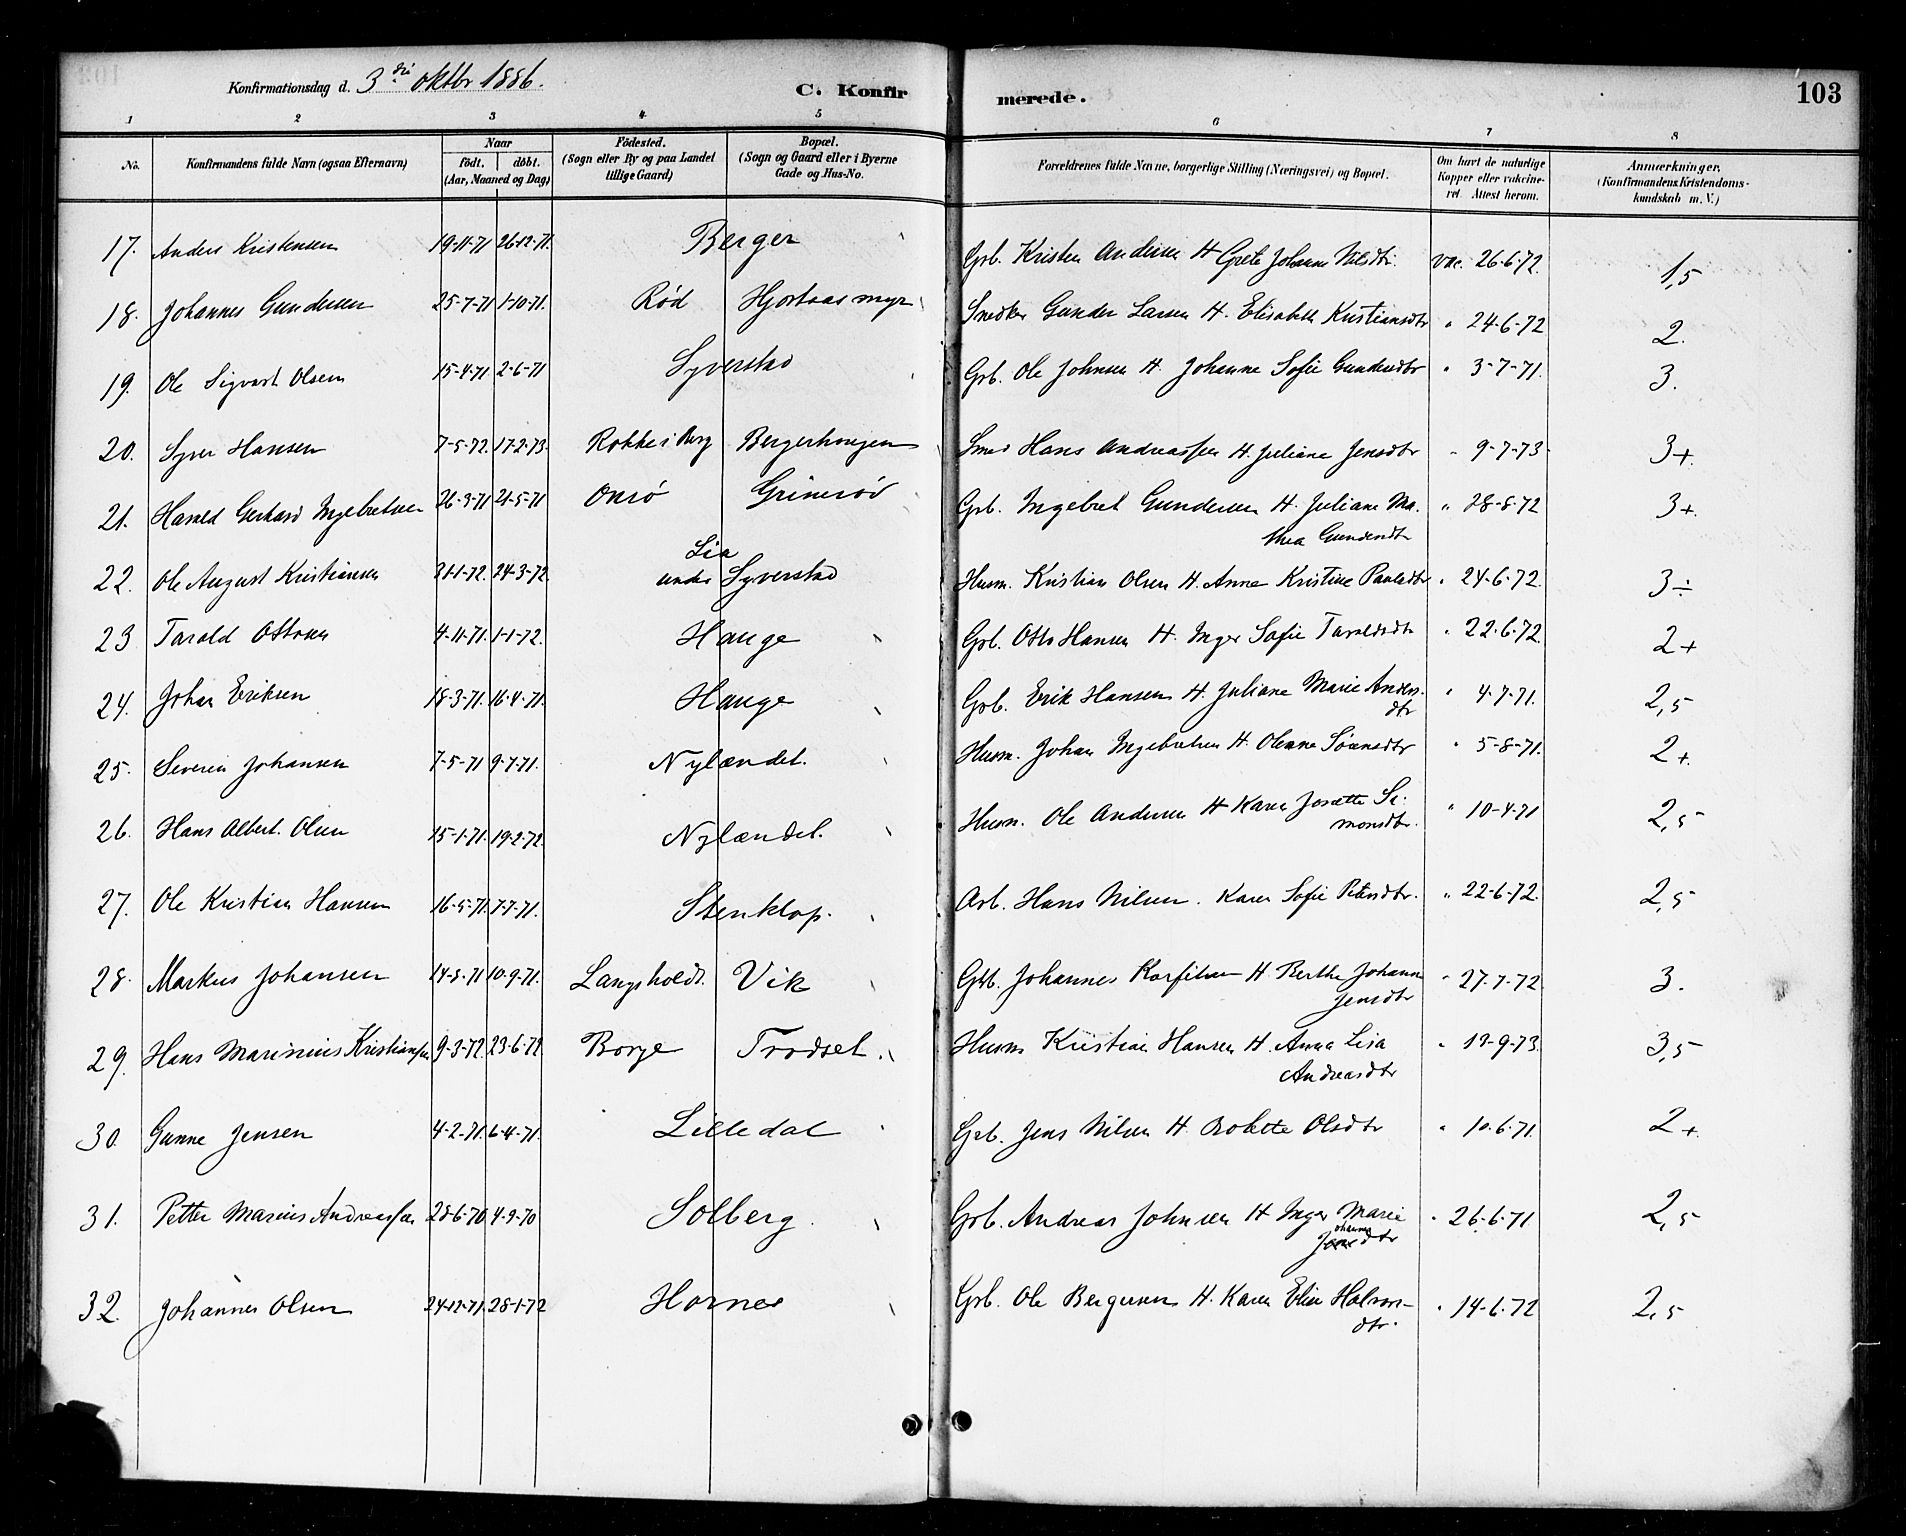 Konfirmationsdag d. 3die oktbr 1886. C. Konfirmerede. 103
1 2 3 4 5 6 7 8
No. Konfirmandens fulde Navn (ogsaa Efternavn) Naar födt. döbt. (Aar, Maaned og Dag) Födested. (Sogn eller By og paa Landet tillige Gaard) Bopæl. (Sogn og Gaard eller i Byerne Gade og Hus-No. Forældrenes fulde Navne, borgerlige Stilling (Næringsvei) og Bopæl. Om havt de naturlige Kopper eller vakcineret Attest herom. Anmærkninger, (Konfirmandens Kristendomskundskab m. V.)
17. Anders Kristensen 19-11-71 26-12-71. Berger Grb. Kristen Andersen H Grete Johanne Nilsdtr. vac. 26-6-72. 1,5
18. Johannes Gundersen 25-7-71 1-10-71. Rød Hjortaasmyr Snedker Gunder Larsen H. Elisabeth Kristiansdtr " 24-6-72 2.
19. Ole Sigvart Olsen 15-4-71 2-6-71 Syverstad Grb. Ole Johnsen H. Johanne Sofie Gundersdtr " 3-7-71. 3.
20. Syver Hansen 7-5-72. 17-2-73. Rokke i Berg Bergerhaugen Smed Hans Andreassen H. Juliane Jensdtr " 9-7-73 3+.
21. Harald Gerhard Ingebretsen 26-3-71 21-5-71 Onsø Grimsrød Grb. Ingebret Gundersen H. Juliane Ma-
thea Gundersdtr " 28-8-72 3+.
22. Ole August Kristiansen 31-1-72. 24-3-72. Lia
under Syverstad Husm. Kristian Olsen H. Anne Kristine Paulsdtr " 24-6-72. 3÷
23 Tarald Ottosen 4-11-71. 1-1-72. Hauge Grb. Otto Hansen H. Inger Sofie Taraldsdtr " 22-6-72. 2+
24. Johan Eriksen 18-3-71. 16-4-71. Hauge Grb. Erik Hansen H. Juliane Marie Anders-
dtr " 4-7-71. 2,5
25. Severin Johansen 7-5-71 9-7-71. Nylændet. Husm. Johan Ingebretsen H. Olenne Sørensdtr " 5-8-71. 2+.
26. Hans Albert Olsen 15-1-71. 19-2-72. Nylændet. Husm. Ole Andersen H Karen Josette Si-
monsdtr. " 10-4-71 2,5
27. Ole Kristian Hansen 16-5-71. 7-7-71. Stenklop. Arb. Hans Nilsen. Karen Sofie Petersdtr. " 22-6-72. 2,5
28. Markus Johansen 14-8-71 10-9-71. Langsholdt. Vik Grb. Johannes Korfitsen H Berthe Johanne
Jensdtr " 27-7-72 3.
29. Hans Marinius Kristiansen 9-3-72 23-6-72 Borge Trodset. Husm Kristian Hansen H. Anna Lisa
Andreasdtr " 13-9-73. 3,5
30. Gunne Jensen 4-2-71. 6-4-71. Lilledal Grb. Jens Nilsen H. Bolette Olsdtr " 10-6-71. 2+.
31. Petter Marius Andreassen 28-6-70 4-9-70 Solberg Grb. Andreas Johnsen H Inger Marie
Johannesdtr " 26-6-71. 2,5
32. Johannes Olsen 24-12-71. 28-1-72 Hornes Grb. Ole Bergersen H. Karen Elise Halvors-
dtr. " 14-6-72 2,5